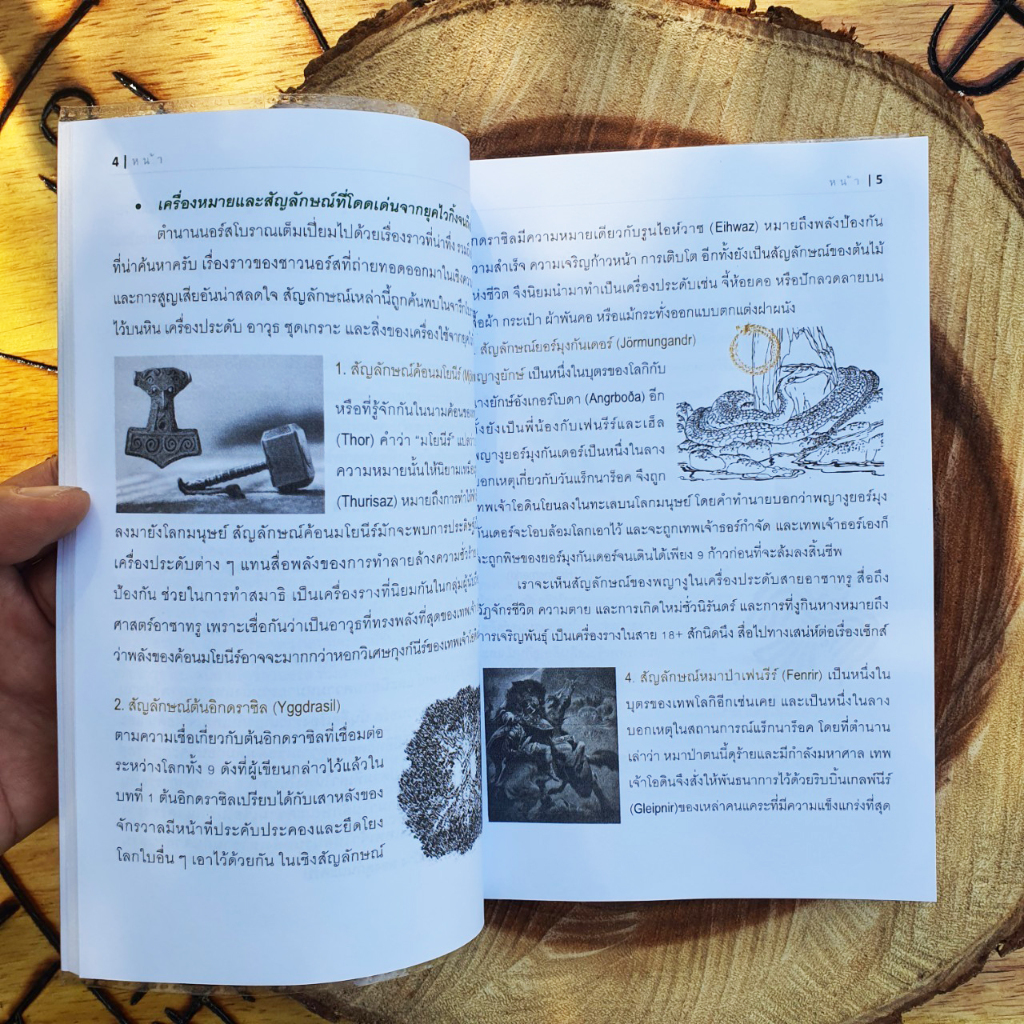 4 | ห น้ า
• เครื่องหมายและสัญลักษณ์ที่โดดเด่นจากยุคไวกิ้ง
ตำนานนอร์สโบราณเต็มเปี่ยมไปด้วยเรื่องราวที่น่าทึ่ง
ที่น่าค้นหาครับ เรื่องราวของชาวนอร์สที่ถ่ายทอดออกมาในเชิง
และการสูญเสียอันน่าสลดใจ สัญลักษณ์เหล่านี้ถูกค้นพบในจารึก
ไว้บนหิน เครื่องประดับ อาวุธ ชุดเกราะ และสิ่งของเครื่องใช้จาก
1. สัญลักษณ์ค้อนมโยนีร์
หรือที่รู้จักกันในนามค้อนของ
(Thor) คำว่า "มโยนีร์"
ความหมายนั้นให้นิยาม
(Thurisaz) หมายถึงการ
ลงมายังโลกมนุษย์ สัญลักษณ์ค้อนมโยนีร์มักจะพบการ
เครื่องประดับต่าง ๆ แทนสื่อพลังของการทำลายล้างความ
ป้องกัน ช่วยในการทำสมาธิ เป็นเครื่องรางที่นิยมกันในกลุ่ม
ศาสตร์อาซาทรู เพราะเชื่อกันว่าเป็นอาวุธที่ทรงพลังที่สุดของเทพเจ้า
ว่าพลังของค้อนมโยนีร์อาจจะมากกว่าหอกวิเศษกุงก์นีร์ของเทพเจ้า
2. สัญลักษณ์ต้นอิกดราซิล (Yggdrasil)
ตามความเชื่อเกี่ยวกับต้นอิกดราซิลที่เชื่อมต่อ
ระหว่างโลกทั้ง 9 ดังที่ผู้เขียนกล่าวไว้แล้วใน
บทที่ 1 ต้นอิกดราซิลเปรียบได้กับเสาหลังของ
จักรวาลมีหน้าที่ประคับประคองและยึดโยง
โลกใบอื่น ๆ เอาไว้ด้วยกัน ในเชิงสัญลักษณ์
ห น้ า | 5
อิกดราซิลมีความหมายเดียวกับรูนไอห์วาซ (Eihwaz) หมายถึงพลังป้องกัน
ความสำเร็จ ความเจริญก้าวหน้า การเติบโต อีกทั้งยังเป็นสัญลักษณ์ของต้นไม้
แห่งชีวิต จึงนิยมนำมาทำเป็นเครื่องประดับเช่น จี้ห้อยคอ หรือปักลวดลายบน
เสื้อผ้า กระเป๋า ผ้าพันคอ หรือแม้กระทั่งออกแบบตกแต่งฝาผนัง
สัญลักษณ์ยอร์มุงกันเดอร์ (Jörmungandr)
พญางูยักษ์ เป็นหนึ่งในบุตรของโลกิกับ
นางยักษ์อังเกอร์โบดา (Angrboða) อีก
ทั้งยังเป็นพี่น้องกับเฟนรีร์และเฮ็ล
พญางูยอร์มุงกันเดอร์เป็นหนึ่งในลาง
บอกเหตุเกี่ยวกับวันแร็กนาร็อค จึงถูก
เทพเจ้าโอดินโยนลงในทะเลบนโลกมนุษย์ โดยคำทำนายบอกว่าพญางูยอร์มุง
กันเดอร์จะโอบล้อมโลกเอาไว้ และจะถูกเทพเจ้าธอร์กำจัด และเทพเจ้าธอร์เองก็
จะถูกพิษของยอร์มุงกันเดอร์จนเดินได้เพียง 9 ก้าวก่อนที่จะล้มลงสิ้นชีพ
เราจะเห็นสัญลักษณ์ของพญางูในเครื่องประดับสายอาซาทรู สื่อถึง
วัฏจักรชีวิต ความตาย และการเกิดใหม่ชั่วนิรันดร์ และการที่งูกินหางหมายถึง
การเจริญพันธุ์ เป็นเครื่องรางในสาย 18+ สักนิดนึง สื่อไปทางเสน่ห์ต่อเรื่องเซ็กส์
4. สัญลักษณ์หมาป่าเฟนรีร์ (Fenrir) เป็นหนึ่งใน
บุตรของเทพโลกิอีกเช่นเคย และเป็นหนึ่งในลาง
บอกเหตุในสถานการณ์แร็กนาร็อค โดยที่ตำนาน
เล่าว่า หมาป่าตนนี้ดุร้ายและมีกำลังมหาศาล เทพ
เจ้าโอดินจึงสั่งให้พันธนาการไว้ด้วยริบบิ้นเกลฟนีร์
(Gleipnir)ของเหล่าคนแคระที่มีความแข็งแกร่งที่สุด